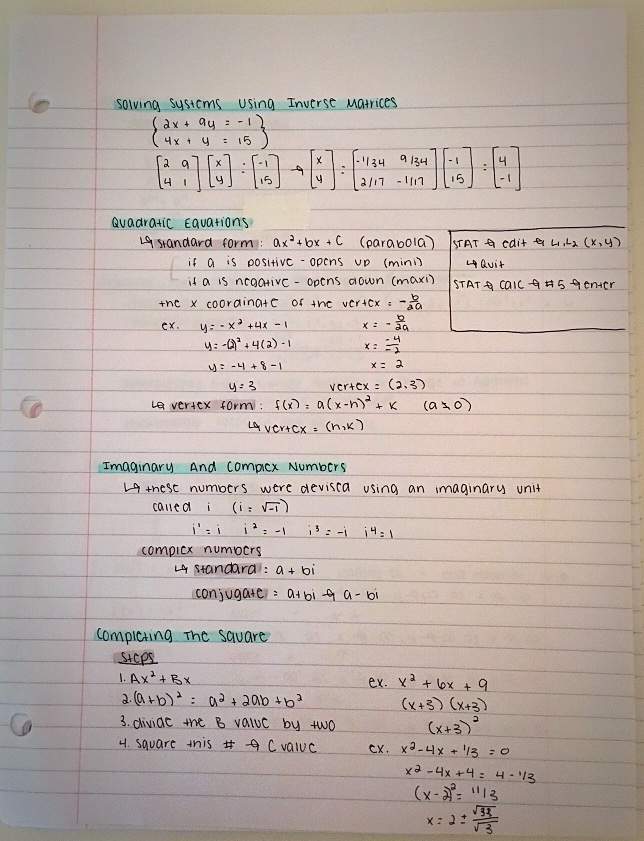 Solving Systems Using Inverse Matrices
{2x + 9y = -1
4x + y = 15}
[2 9 4 1] [x y] = [-1 15] → [x y] = [-1/34 9/34 2/17 -1/17] [-1 15] = [4 -1]
Quadratic Equations
↳ Standard form: ax² + bx + c (parabola)
if a is positive - opens up (mini)
if a is negative - opens down (maxi)
the x coordinate of the vertex = -b/2a
STAT → edit → L1, L2 (x, y)
↳ quit
STAT → CALC → #5 → enter
ex. y = -x² + 4x - 1 x = -b/2a
y = -(2)² + 4(2) - 1 x = -4/-2
y = -4 + 8 - 1 x = 2
y = 3 vertex = (2,3)
↳ vertex form: f(x) = a(x-h)² + k (a ≠ 0)
↳ vertex = (h,k)
Imaginary And Complex Numbers
↳ these numbers were devised using an imaginary unit
called i (i = √-1)
i¹ = i i² = -1 i³ = -i i⁴ = 1
complex numbers
↳ standard: a + bi
conjugate = a+bi → a - bi
Completing The Square
Steps
1. Ax² + Bx ex. x² + 6x + 9
2. (a+b)² = a² + 2ab + b² (x+3) (x+3)
3. divide the B value by two (x+3)²
4. square this # → C value ex. x² - 4x + 1/3 = 0
x² - 4x + 4 = 4 - 1/3
(x-2)² = 11/3
x = 2 ± √33/√3